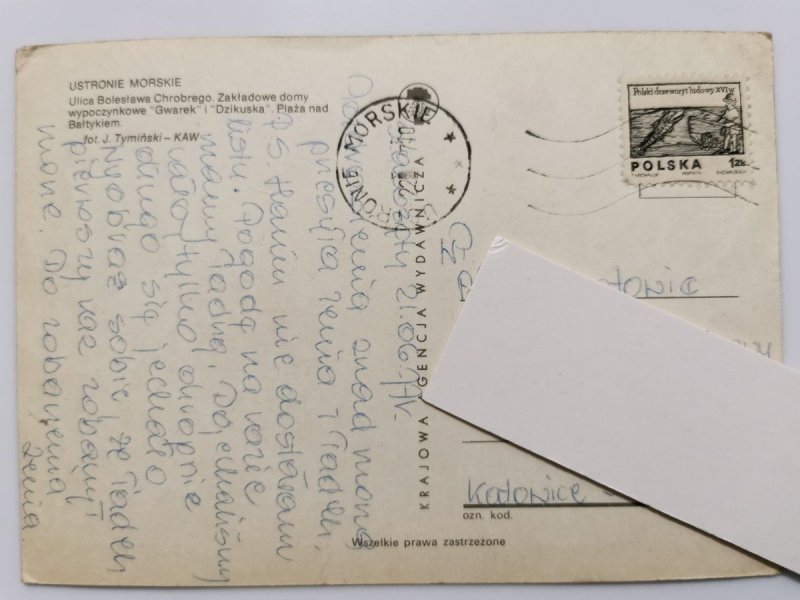 USTRONIE MORSKIE
Ulica Bolesława Chrobrego. Zakładowe domy
wypoczynkowe "Gwarek" i "Dzikuska". Plaża nad
Bałtykiem.
fot. J. Tymiński – KAW
21.06.77r.
Pozdrowienia znad morza
przesyła Zenia i Tadek.
P.S. Haniu nie dostałam
listu. Pogodę na razie
mamy ładną. Dojechaliśmy
cało tylko okropnie
długo się jechało
Wyobraź sobie, że Tadek
pierwszy raz zobaczył
morze. Do zobaczenia
Zenia
KRAJOWA AGENCJA WYDAWNICZA
USTRONIE MORSKIE
Polski drzeworyt ludowy XVI w
POLSKA 1ZŁ
Katowice
ozn. kod.
Wszelkie prawa zastrzeżone